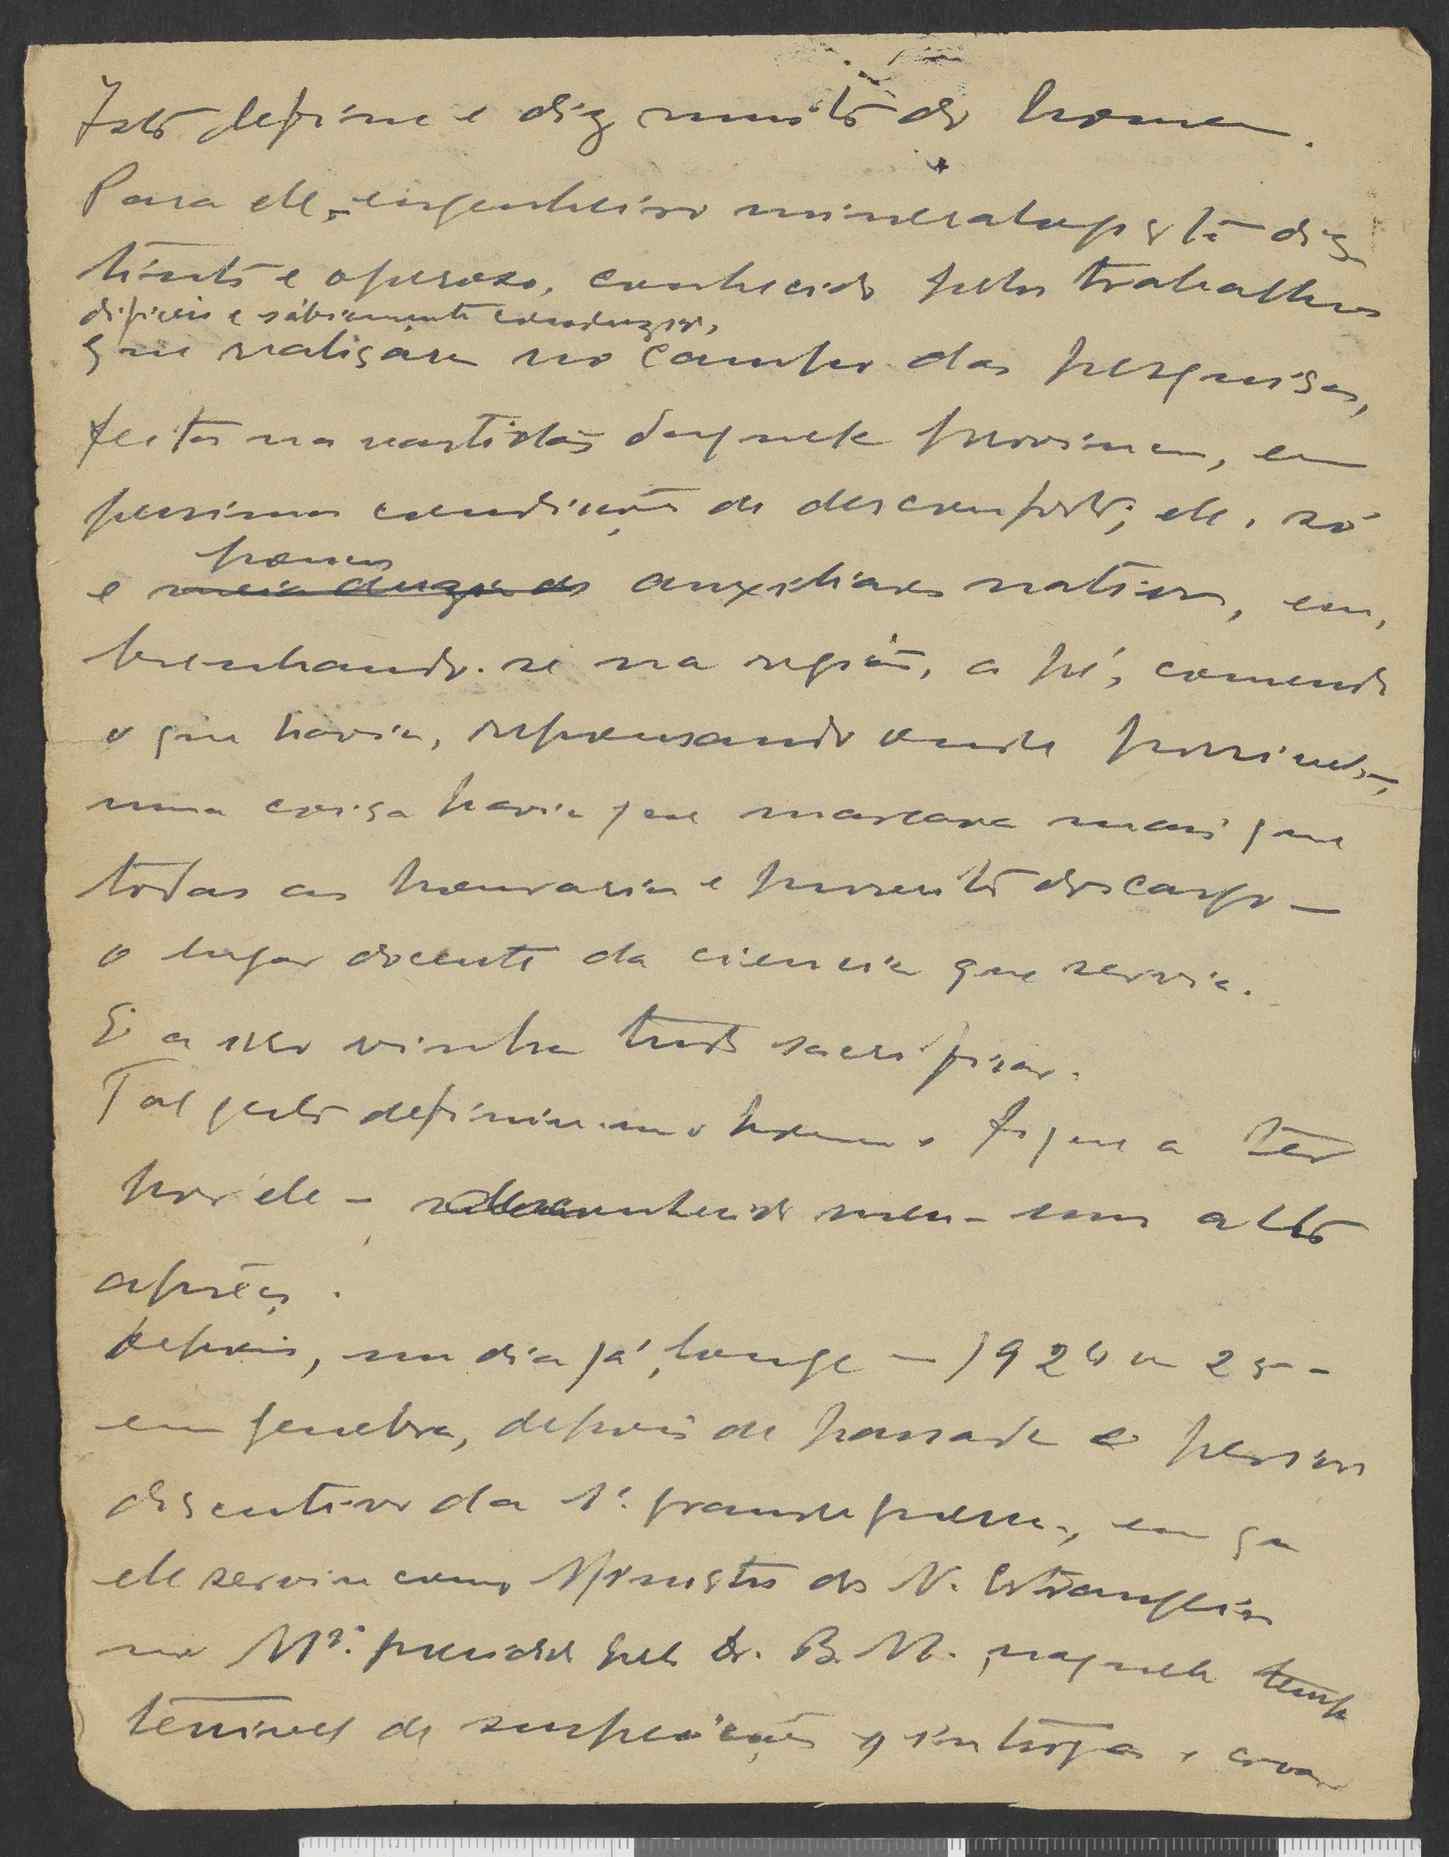 Isto define e diz muito do homem.
Para ele, engenheiro mineralogista dis-
tinto e operoso, conhecido pelos trabalhos
dificeis e sábiamente conduzidos,
que realizara no campo das pesquisas,
feitas na vastidão daquele provincia, em
pessimas condições de desconforto; ele, só
poucos
e meia duzia de auxiliares nativos, em-
brenhando-se na região, a pé, comendo
o que havia, repousando onde
uma coisa havia que marcava mais que
todas as honrarias e proveito dos cargos —
o lugar docente da ciencia que servia.
E a isso vinha tudo sacrificar.
Tal gesto definiu-me o homem e fez que a ter
por ele - desconhecido meu - um alto
apreço.
Depois, um dia já longe — 1924 ou 25 -
em Genebra, depois de passado o periodo
discutivo da 1ª grande guerra, em que
ele serviu como Ministro dos N. Estrangeiros
no Mº. presidido pelo Dr. B. M. naquele tempo
terrivel de suspeições, intrigas e